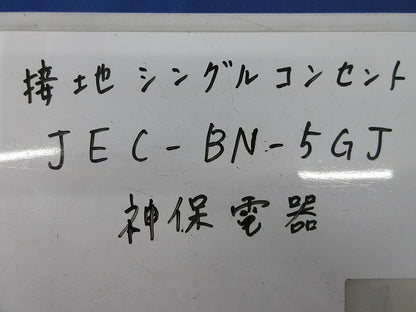 接地シングルコンセント
JEC-BN-5GJ
神保電器